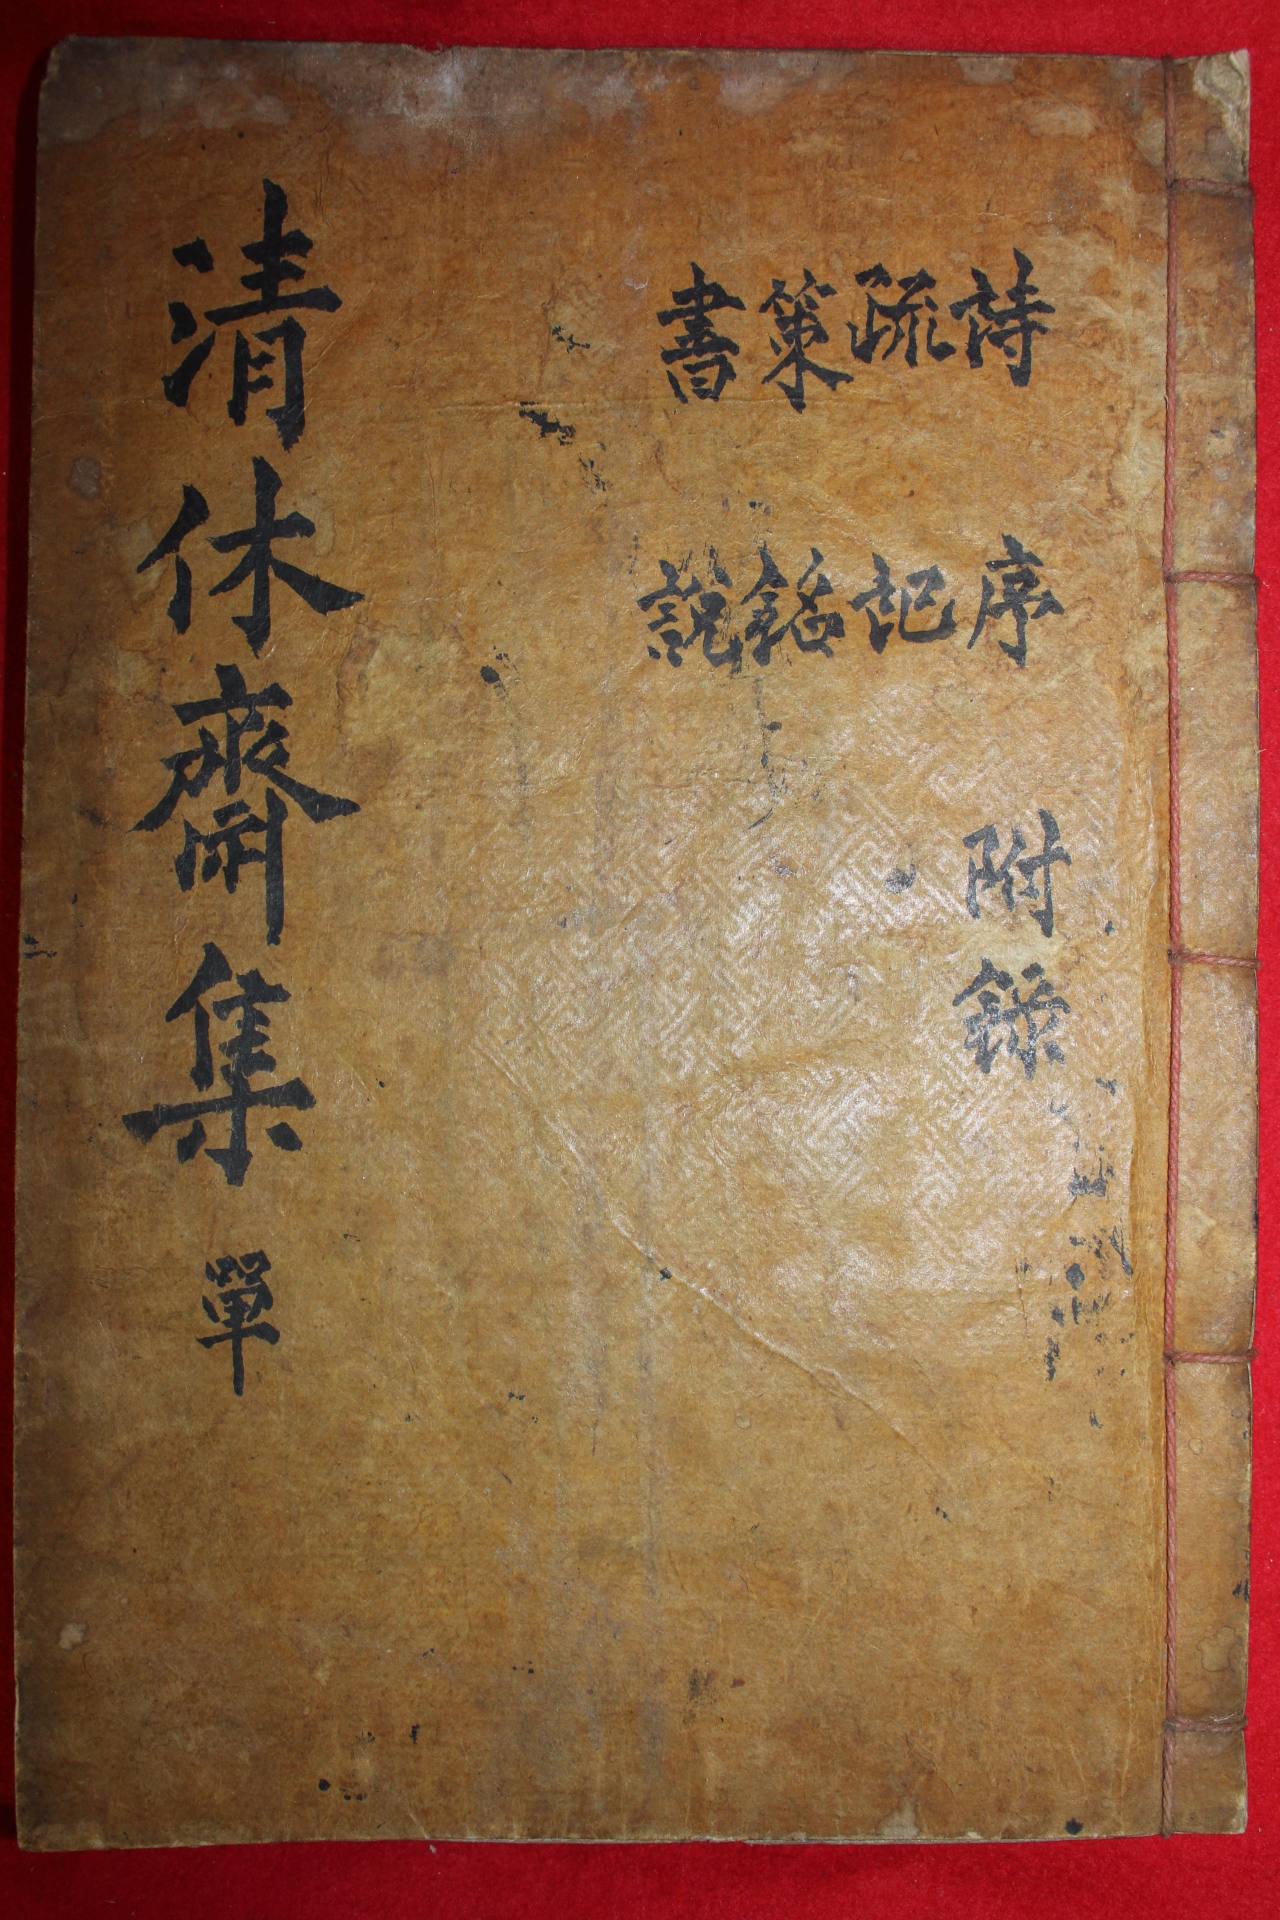 詩 序 附錄
疏 記
策 銘
書 說
清休齋集 單